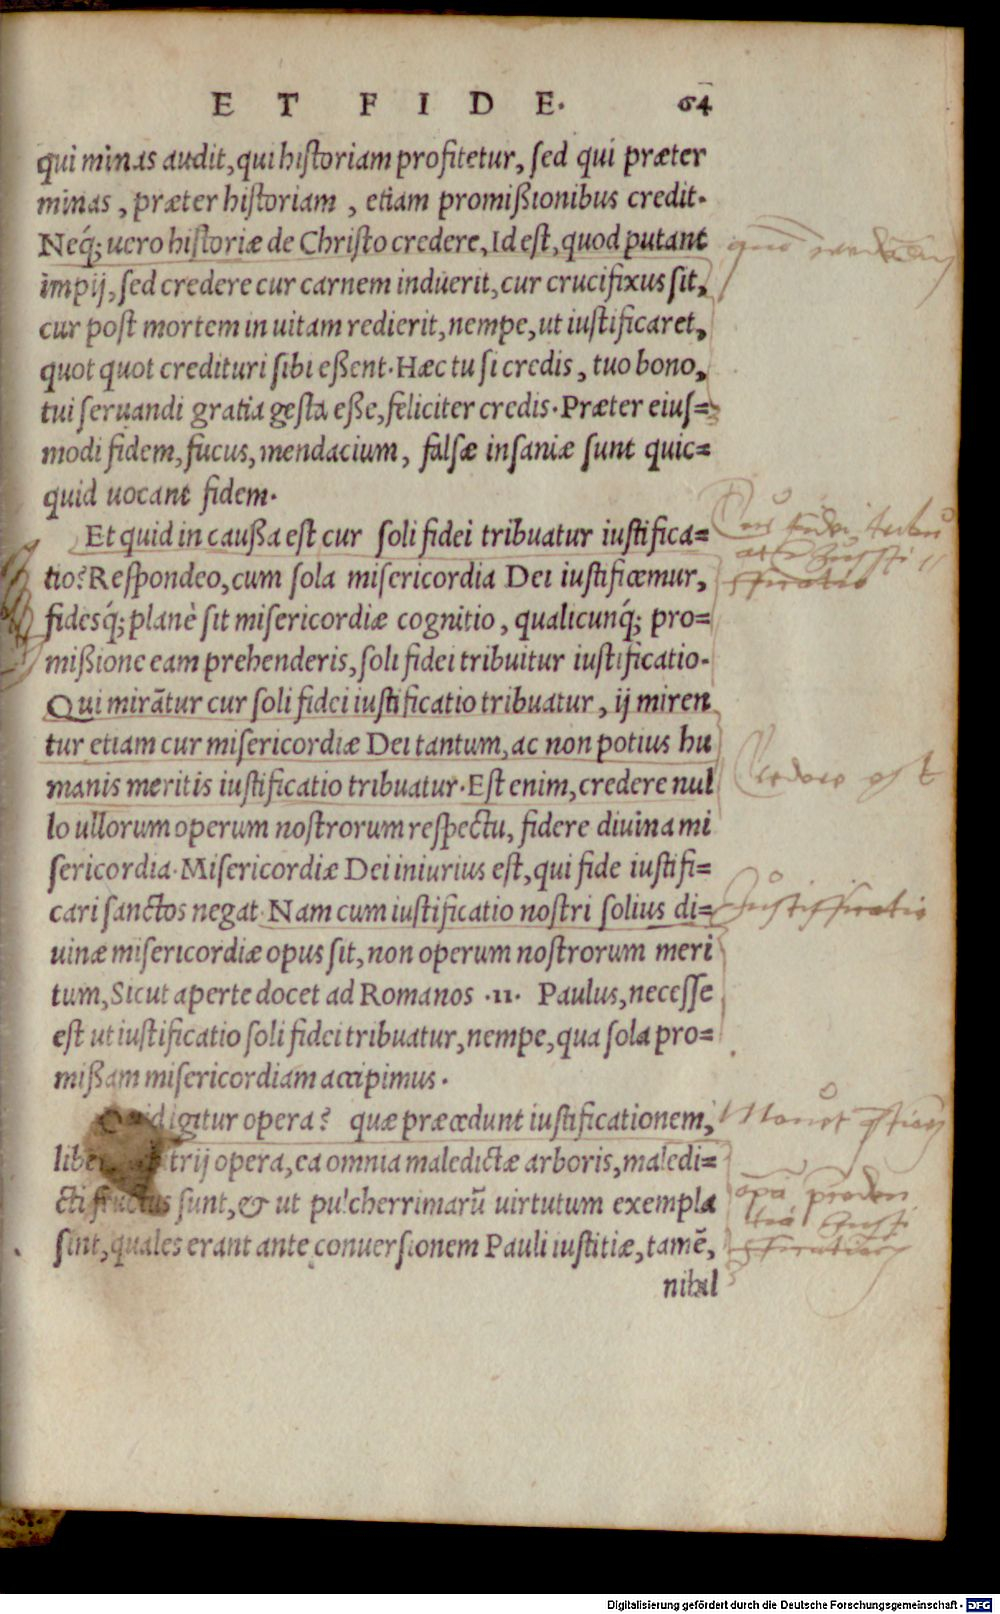 ET FIDE. 64
qui minas audit, qui historiam profitetur, sed qui præter
minas, præter historiam, etiam promißionibus credit.
Neq́; uero historiæ de Christo credere, Id est, quod putant
impij, sed credere cur carnem induerit, cur crucifixus sit,
cur post mortem in uitam redierit, nempe, ut iustificaret,
quot quot credituri sibi eßent. Hæc tu si credis, tuo bono,
tui seruandi gratia gesta eße, feliciter credis. Præter eius=
modi fidem, fucus, mendacium, falsæ insaniæ sunt quic=
quid uocant fidem.
Et quid in caußa est cur soli fidei tribuatur iustifica=
tio? Respondeo, cum sola misericordia Dei iustificemur,
fidesq́; planè sit misericordiæ cognitio, qualicunq́; pro=
mißione eam prehenderis, soli fidei tribuitur iustificatio.
Qui mirãtur cur soli fidei iustificatio tribuatur, ij miren
tur etiam cur misericordiæ Dei tantum, ac non potius hu
manis meritis iustificatio tribuatur. Est enim, credere nul
lo ullorum operum nostrorum respectu, fidere diuina mi
sericordia. Misericordiæ Dei iniurius est, qui fide iustifi=
cari sanctos negat. Nam cum iustificatio nostri solius di=
uinæ misericordiæ opus sit, non operum nostrorum meri
tum, Sicut aperte docet ad Romanos .11. Paulus, necesse
est ut iustificatio soli fidei tribuatur, nempe, qua sola pro=
mißam misericordiam accipimus.
Quid igitur opera? quæ præcedunt iustificationem,
liberi arbitrij opera, ea omnia maledictæ arboris, maledi=
cti fructus sunt, & ut pulcherrimarũ uirtutum exempla
sint, quales erant ante conuersionem Pauli iustitiæ, tamẽ,
nihil
Cur fidei tribu
atur Justi
fficatio
Credere est
Justifficatio
Mouet
opa preden
tia Justi
Digitalisierung gefördert durch die Deutsche Forschungsgemeinschaft - DFG